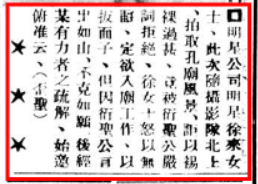 明星公司明星徐來女
士、此次隨攝影隊北上
、拍取孔廟風景、詎以裼
裸過甚、竟被衍聖公嚴
詞拒絕、徐女士怒以無
禮、定欲入廟工作、以
扳面子、但因衍聖公言
出如山、不克如願、後經
某有力者之疏解、始邀
俯准云、（歪聖）